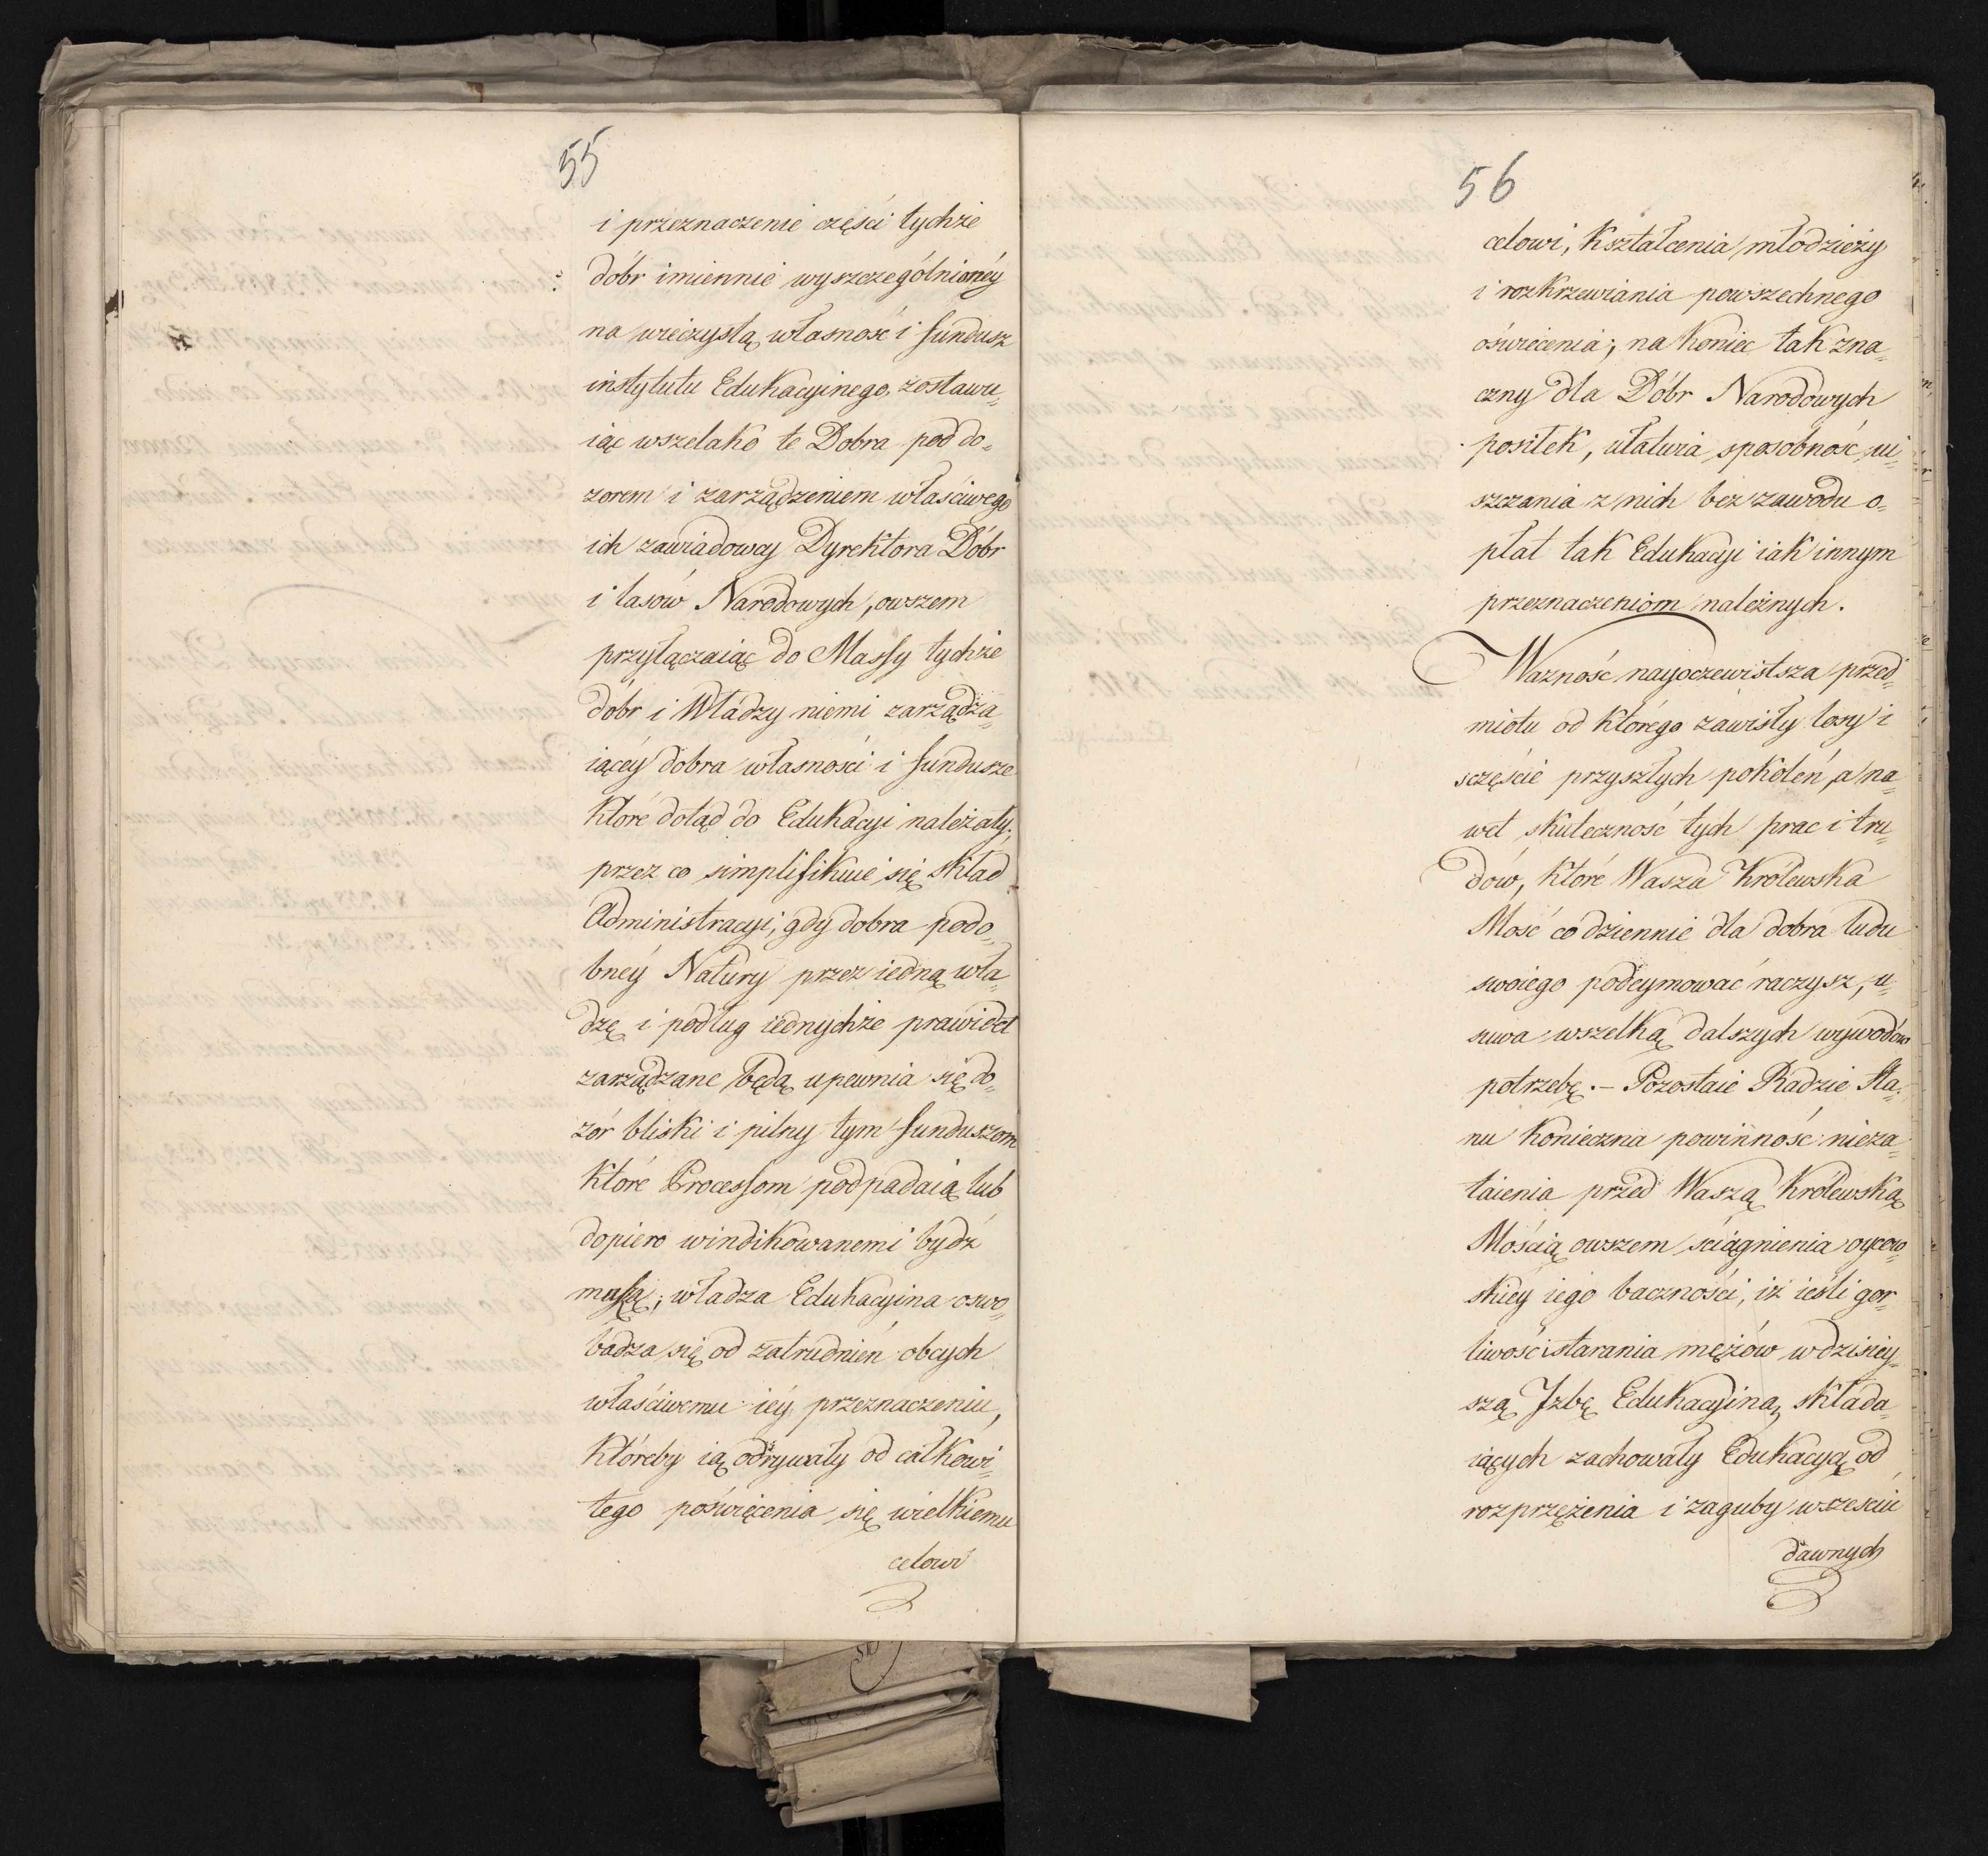 55
i przeznaczenie części tychże
dóbr imiennie wyszczególnionéy
na wieczystą własność i fundusz
instytutu Edukacyinego, zostawu„
iąc wszelako te Dobra pod do„
zorem i zarządzeniem właściwego
ich zawiadowcy Dyrektora Dóbr
i lasów Narodowych, owszem
przyłączaiąc do Massy tychże
dóbr i Władzy niemi zarządza„
iącéy dobra własności i fundusze
które dotąd do Edukacyi należały;
przez co simplifikuie się skład
Administracyi, gdy dobra podo„
bnéy Natury przez iedną wła„
dzę i podług iednychże prawideł
zarządzane będą upewnia się do„
zór bliski i pilny tym funduszom
które Processom podpadaią lub
dopiero windikowanemi bydź
muszą; władza Edukacyina oswo„
badza się od zatrudnień obcych
właściwemu iéy przeznaczeniu,
któreby ią odrywały od całkowi„
tego poświęcenia się wielkiemu
celowi
56
celowi, kształcenia młodzieży
i rozkrzewiania powszechnego
oświecenia; na koniec tak zna„
czny dla Dóbr Narodowych
posiłek, ułatwia sposobność ui„
szczania z nich bez zawodu o„
płat tak Edukacyi iak innym
przeznaczeniom należnych.
Ważność nayoczewistsza przed„
miotu od którego zawisły losy i
sczęście przyszłych pokoleń, a na„
wet skuteczność tych prac i tru„
dów, które Wasza Królewska
Mość codziennie dla dobra ludu
swoiego podeymować raczysz, u„
suwa wszelką dalszych wywodów
potrzebę. – Pozostaie Radzie Sta„
nu konieczna powinność nieza„
taienia przed Waszą Królewską
Mością owszem ściągnienia oycow„
skiéy iego baczności, iż ieśli gor„
liwość i starania mężów w dzisiey„
szą Izbę Edukacyiną składa„
iących zachowały Edukacyą od
rozprzężenia i zaguby w sześciu
dawnych